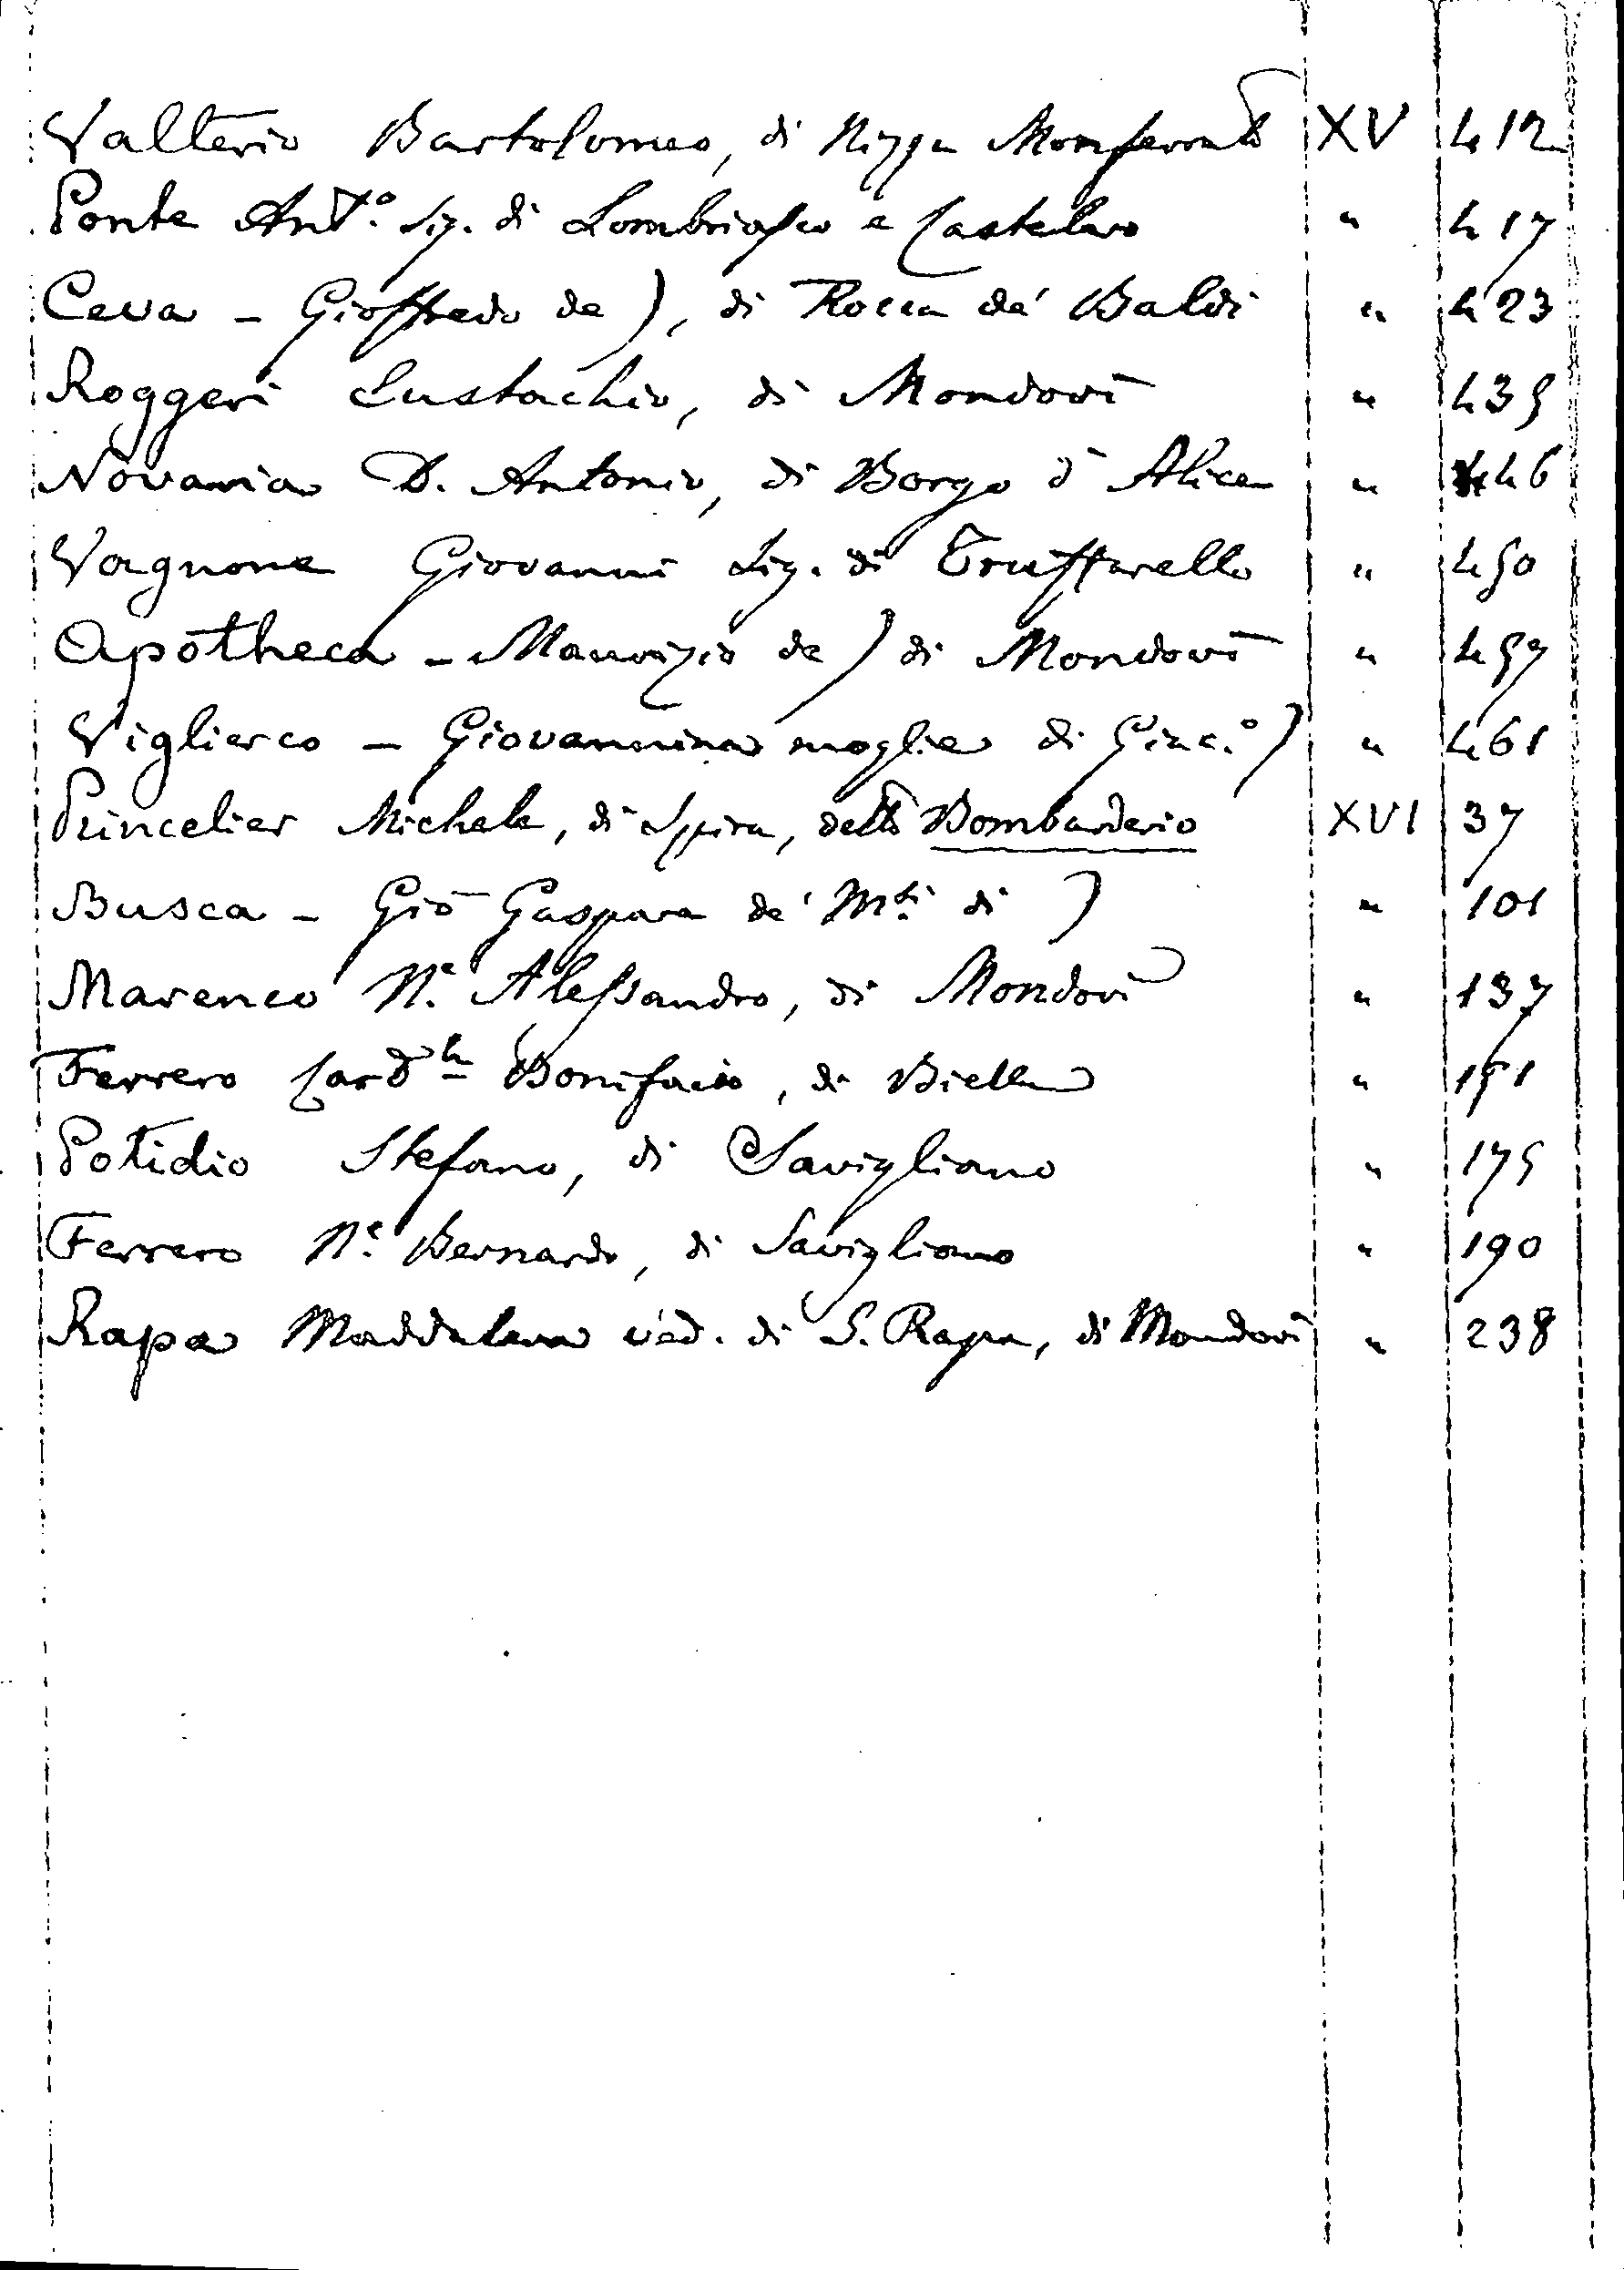 Valterio Bartolomeo, di Nizza Monferrato XV 412
Ponte Ant.º Sig. di Lombriasco e Castelaro " 417
Ceva - Gioffredo de), di Rocca de' Baldi " 423
Roggeri Eustachio, di Mondovì " 435
Novaria D. Antonio, di Borgo d'Alice " 446
Vagnone Giovanni Sig. di Truffarello " 450
Apotheca - Maurizio de) di Mondovì " 457
Viglierco - Giovannina moglie di Giac.º) " 461
Princelier Michele, di Spira, detto Bombarderio XVI 37
Busca - Giō Gaspare de' M.ti di) " 101
Marenco N.e Alessandro, di Mondovì " 137
Ferrero Card.le Bonifacio, di Biella " 151
Potidio Stefano, di Savigliano " 175
Ferrero N.e Bernardo, di Savigliano " 190
Rapa Maddalena ved. di S. Rapa, di Mondovì " 238